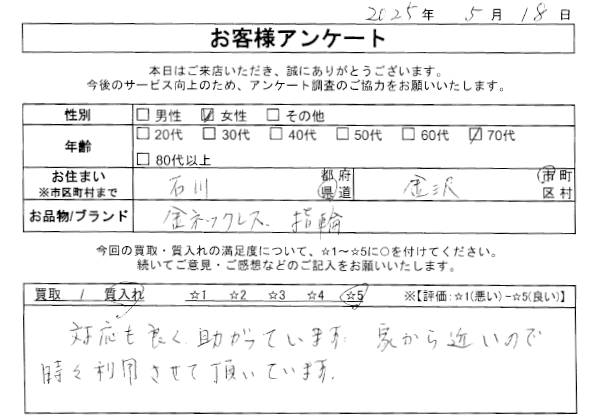 2025年 5月 18日
お客様アンケート
本日はご来店いただき、誠にありがとうございます。
今後のサービス向上のため、アンケート調査のご協力をお願いいたします。
性別 □男性 ☑女性 □その他
年齢 □20代 □30代 □40代 □50代 □60代 ☑70代
□80代以上
お住まい ※市区町村まで 石川 都府県道 金沢 市町区村
お品物/ブランド 金ネックレス、指輪
今回の買取・質入れの満足度について、☆1～☆5に○を付けてください。
続いてご意見・ご感想などのご記入をお願いいたします。
買取 / 質入れ ☆1 ☆2 ☆3 ☆4 ☆5 ※【評価:☆1(悪い)－☆5(良い)】
対応も良く、助がっています。家から近いので
時々利用させて頂いています。